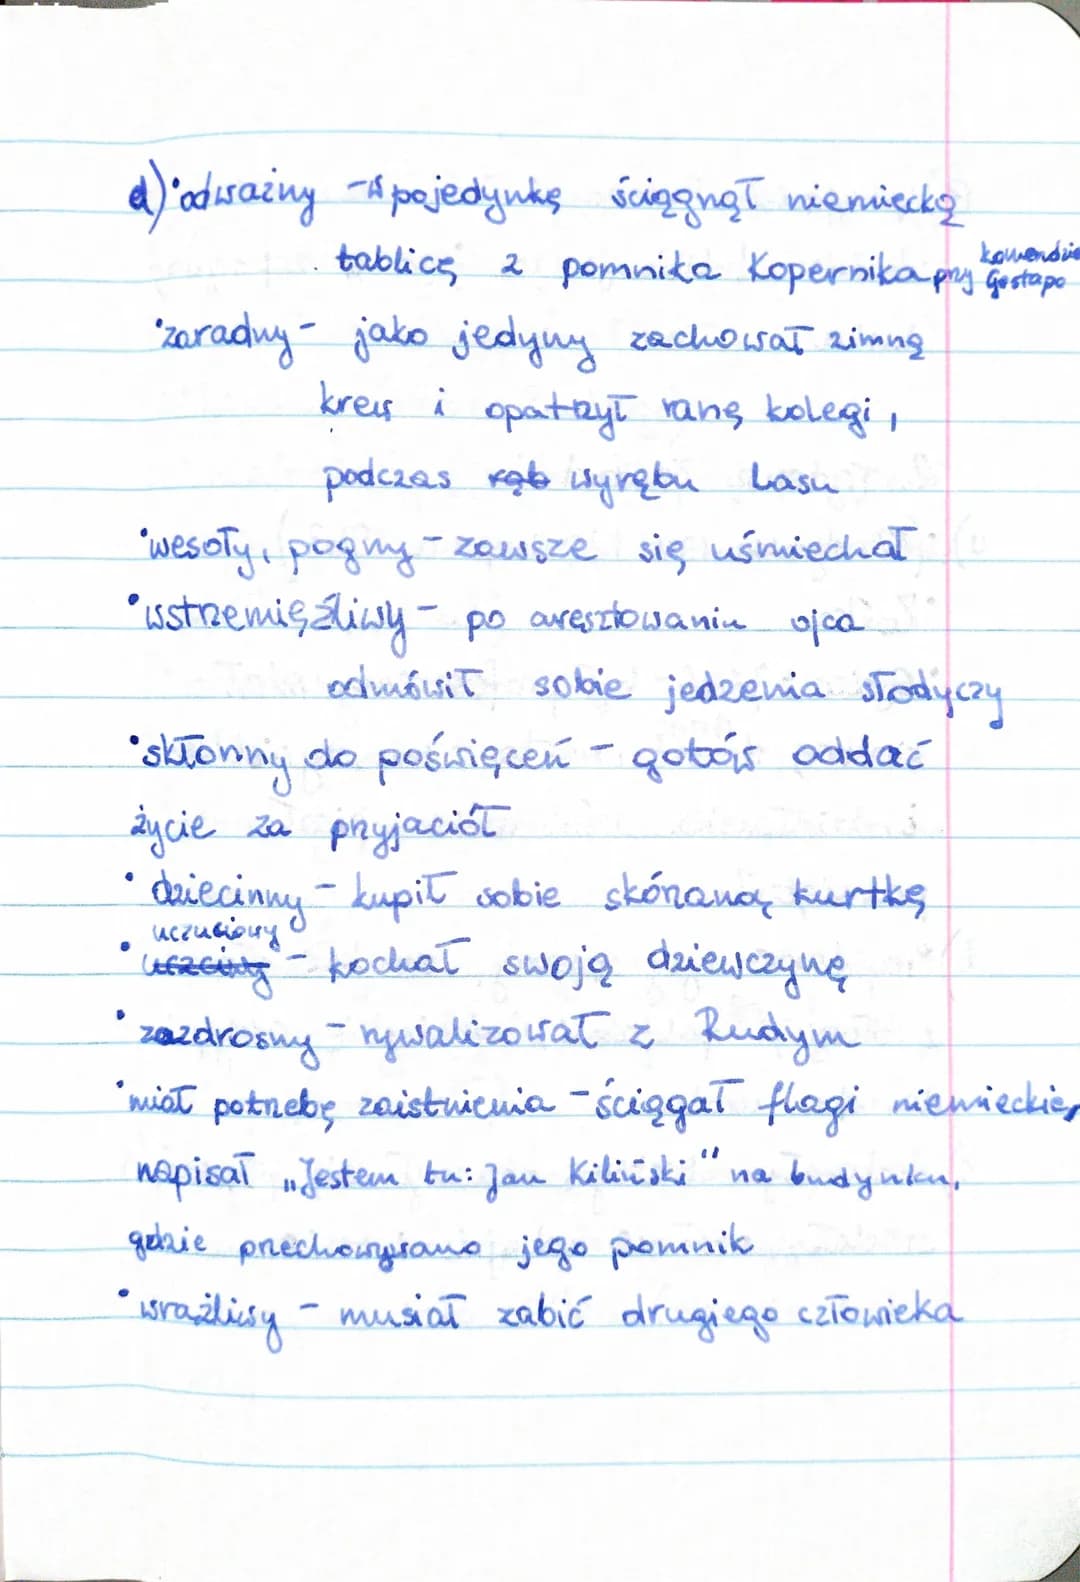 d) •odważny - w pojedynkę ściągnął niemiecką
tablicę z pomnika Kopernika przy komendzie Gestapo
•zaradny - jako jedyny zachował zimną
krew i opatrzył ranę kolegi,
podczas rąb wyrębu lasu
•wesoły, pogny - zawsze się uśmiechał
•wstrzemięźliwy - po aresztowaniu ojca
odmówił sobie jedzenia słodyczy
•skłonny do poświęceń - gotów oddać
życie za przyjaciół
•dziecinny - kupił sobie skórzaną kurtkę
uczuciowy
•uczciwy - kochał swoją dziewczynę
•zazdrosny - rywalizował z Rudym
•miał potrzebę zaistnienia - ściągał flagi niemieckie,
napisał „Jestem tu: Jan Kiliński" na budynku,
gdzie przechowywano jego pomnik
•wrażliwy - musiał zabić drugiego człowieka